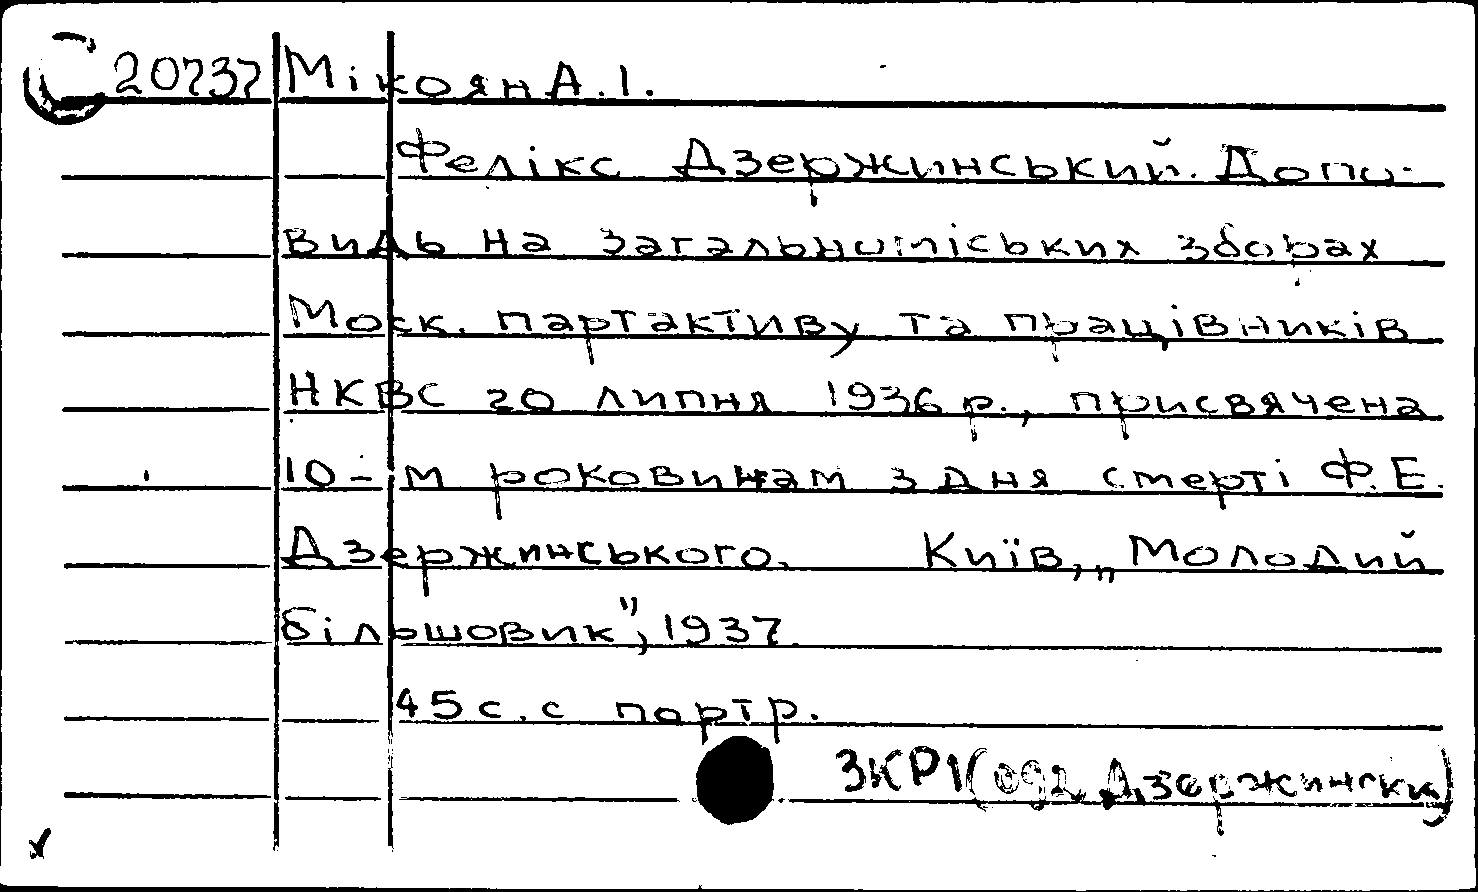 С 20737 Мікоян А.І.
Фелікс Дзержинський. Допо-
видь на загальноміських зборах
Моск. партактиву та працівників
НКВС 20 липня 1936 р., присвячена
10-м роковинам з дня смерті Ф.Е.
Дзержинського. Київ, „Молодий
більшовик", 1937
45 с. с портр.
ЗКР1(092 Дзержински)